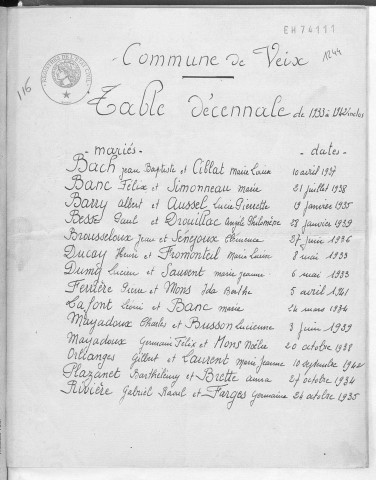 EH76111
Commune de Veix
1244
116
Table décennale de 1933 à 1942 inclus
- mariés -
- dates -
Bach Jean Baptiste et Cillat Marie Louise 10 avril 1937
Banc Félix et Simonneau Marie 21 juillet 1938
Barry Albert et Aussel Lucie Pierrette 19 janvier 1935
Besse Paul et Drouillac Angèle Philomène 28 janvier 1939
Brousseloux Jean et Sénéjoux Clémence 27 juin 1936
Ducay Henri et Fromonteil Marie Louise 8 mai 1933
Dumas Lucien et Saurent Marie Jeanne 6 mai 1933
Ferrière Pierre et Mons Ida Berthe 5 avril 1941
Lafont Léoni et Banc Marie 24 mars 1934
Mayadoux Charles et Busson Lucienne 3 juin 1939
Mayadoux Germain Félix et Mons Noélie 20 octobre 1938
Orliangès Gilbert et Laurent Marie Jeanne 10 septembre 1942
Plazanet Barthélemy et Brette Anna 27 octobre 1934
Rivière Gabriel Raoul et Farges Germaine 24 octobre 1935